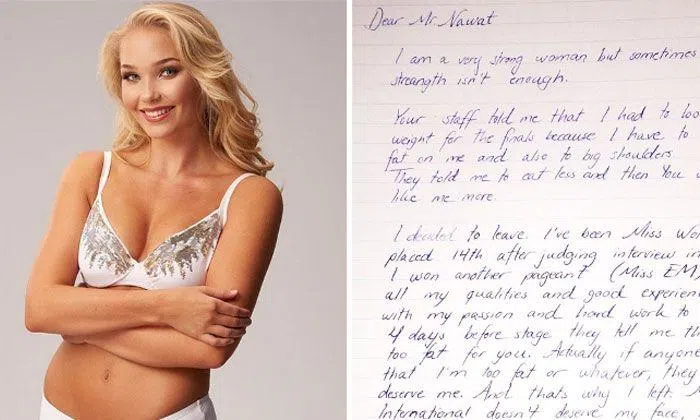 Dear Mr. Nawat
I am a very strong woman but sometimes
streangth isn't enough.
Your staff told me that I had to loo
weight for the finals because I have to
fat on me and also to big shoulders.
They told me to eat less and then You w
like me more.
I decided to leave. I've been Miss Wor
placed 14th after judging interview in
I won another pageant (Miss EM
all my qualities and good experien
with my passion and hard work to
4 days before stage they tell me th
too fat for you. Actually if anyone
that I'm too fat or whatever, they
deserve me. And thats why I left. M
International doesn't deserve my face,